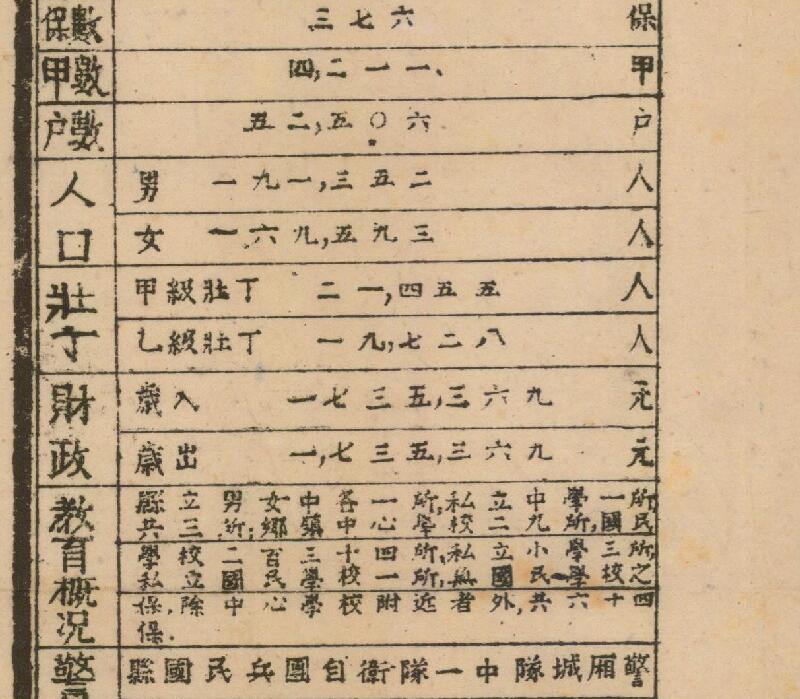 保數 三七六 保
甲數 四,二一一、 甲
户數 五二,五〇六 户
人口 男 一九一,三五二 人
女 一六九,五九三 人
壯丁 甲級壯丁 二一,四五五 人
乙級壯丁 一九,七二八 人
財政 歲入 一七三五,三六九 元
歲出 一,七三五,三六九 元
教育概況 縣立男女中各一所,私立中學一所
共三所;鄉鎮中心學校二九所,國民
學校二百三十四所,私立小學三所
私立國民學校一所,無國民學校之
保,除中心學校附近者外,共六十四
保.
警 縣國民兵團自衛隊一中隊城廂警